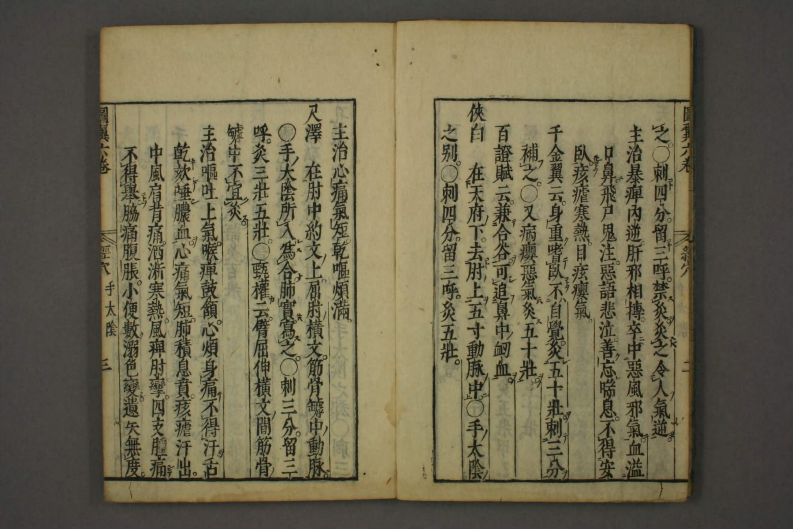 圖翼六卷
之○刺四分留三呼禁灸灸之令人氣逆
主治暴痺內逆肝邪相搏卒中惡風邪氣血溢
口鼻飛尸鬼注惡語悲泣善忘喘息不得安
臥痎瘧寒熱目痎癭氣
千金翼云身重嗜臥不自覺灸五十壯刺三分
補之○又病癭惡氣灸五十壯
百證賦云兼合谷可追鼻中衂血
俠白 在天府下去肘上五寸動脉中○手太陰
之别○刺四分留三呼灸五壯
主治心痛氣短乾嘔煩滿
尺澤 在肘中約文上屈肘橫文筋骨罅中動脉
○手太陰所入爲合肺實寫之○刺三分留三
呼灸三壯五壯○甄權云臂屈伸橫文間筋骨
罅中不宜灸
主治嘔吐上氣喉痺鼓頷心煩身痛不得汗舌
乾欬唾膿血心痛氣短肺積息賁痎瘧汗出
中風肩背痛洒淅寒熱風痺肘攣四支腫痛
不得舉脇痛腹脹小便數溺色變遺矢無度
圖翼六卷
經穴 手太陰
三